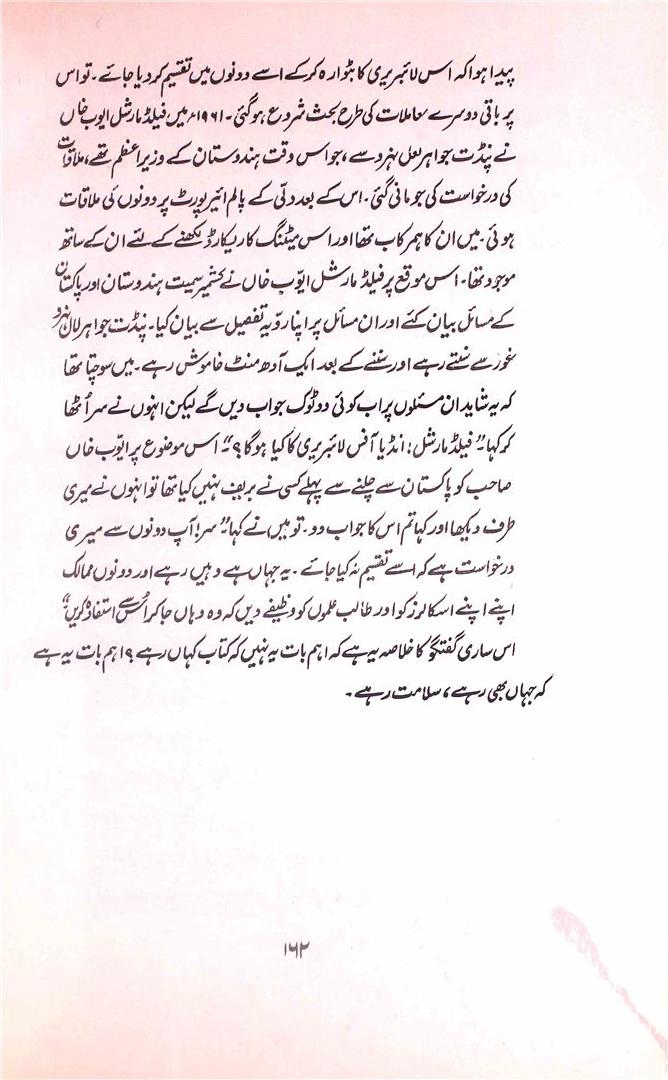 پیدا ہوا کہ اس لائبریری کا بٹوارہ کرکے اسے دونوں میں تقسیم کر دیا جائے۔ تو اس
پر باقی دوسرے معاملات کی طرح بحث شروع ہوگئی۔ ۱۹۶۱ء میں فیلڈ مارشل ایوب خاں
نے پنڈت جواہر لعل نہرو سے، جو اس وقت ہندوستان کے وزیراعظم تھے، ملاقات
کی درخواست کی جو مانی گئی۔ اس کے بعد دلّی کے پالم ائیرپورٹ پر دونوں کی ملاقات
ہوئی۔ میں ان کا ہمرکاب تھا اور اس میٹنگ کا ریکارڈ رکھنے کے لئے ان کے ساتھ
موجود تھا۔ اس موقع پر فیلڈ مارشل ایوّب خاں نے کشمیر سمیت ہندوستان اور پاکستان
کے مسائل بیان کئے اور ان مسائل پر اپنا رویّہ تفصیل سے بیان کیا۔ پنڈت جواہر لال نہرو
غور سے سنتے رہے اور سننے کے بعد ایک آدھ منٹ خاموش رہے۔ میں سوچتا تھا
کہ یہ شاید ان مسئلوں پر اب کوئی دو ٹوک جواب دیں گے لیکن انہوں نے سر اُٹھا
کر کہا۔" فیلڈ مارشل! انڈیا آفس لائبریری کا کیا ہوگا؟" اس موضوع پر ایوّب خاں
صاحب کو پاکستان سے چلنے سے پہلے کسی نے بریف نہیں کیا تھا تو انہوں نے میری
طرف دیکھا اور کہا تم اس کا جواب دو۔ تو میں نے کہا۔" سر! آپ دونوں سے میری
درخواست ہے کہ اسے تقسیم نہ کیا جائے۔ یہ جہاں ہے وہیں رہے اور دونوں ممالک
اپنے اپنے اسکالرز کو اور طالب علموں کو وظیفے دیں کہ وہ وہاں جاکر اُس سے استفادہ کریں"
اس ساری گفتگو کا خلاصہ یہ ہے کہ اہم بات یہ نہیں کہ کتاب کہاں رہے؟ اہم بات یہ ہے
کہ جہاں بھی رہے، سلامت رہے۔
۱۶۲